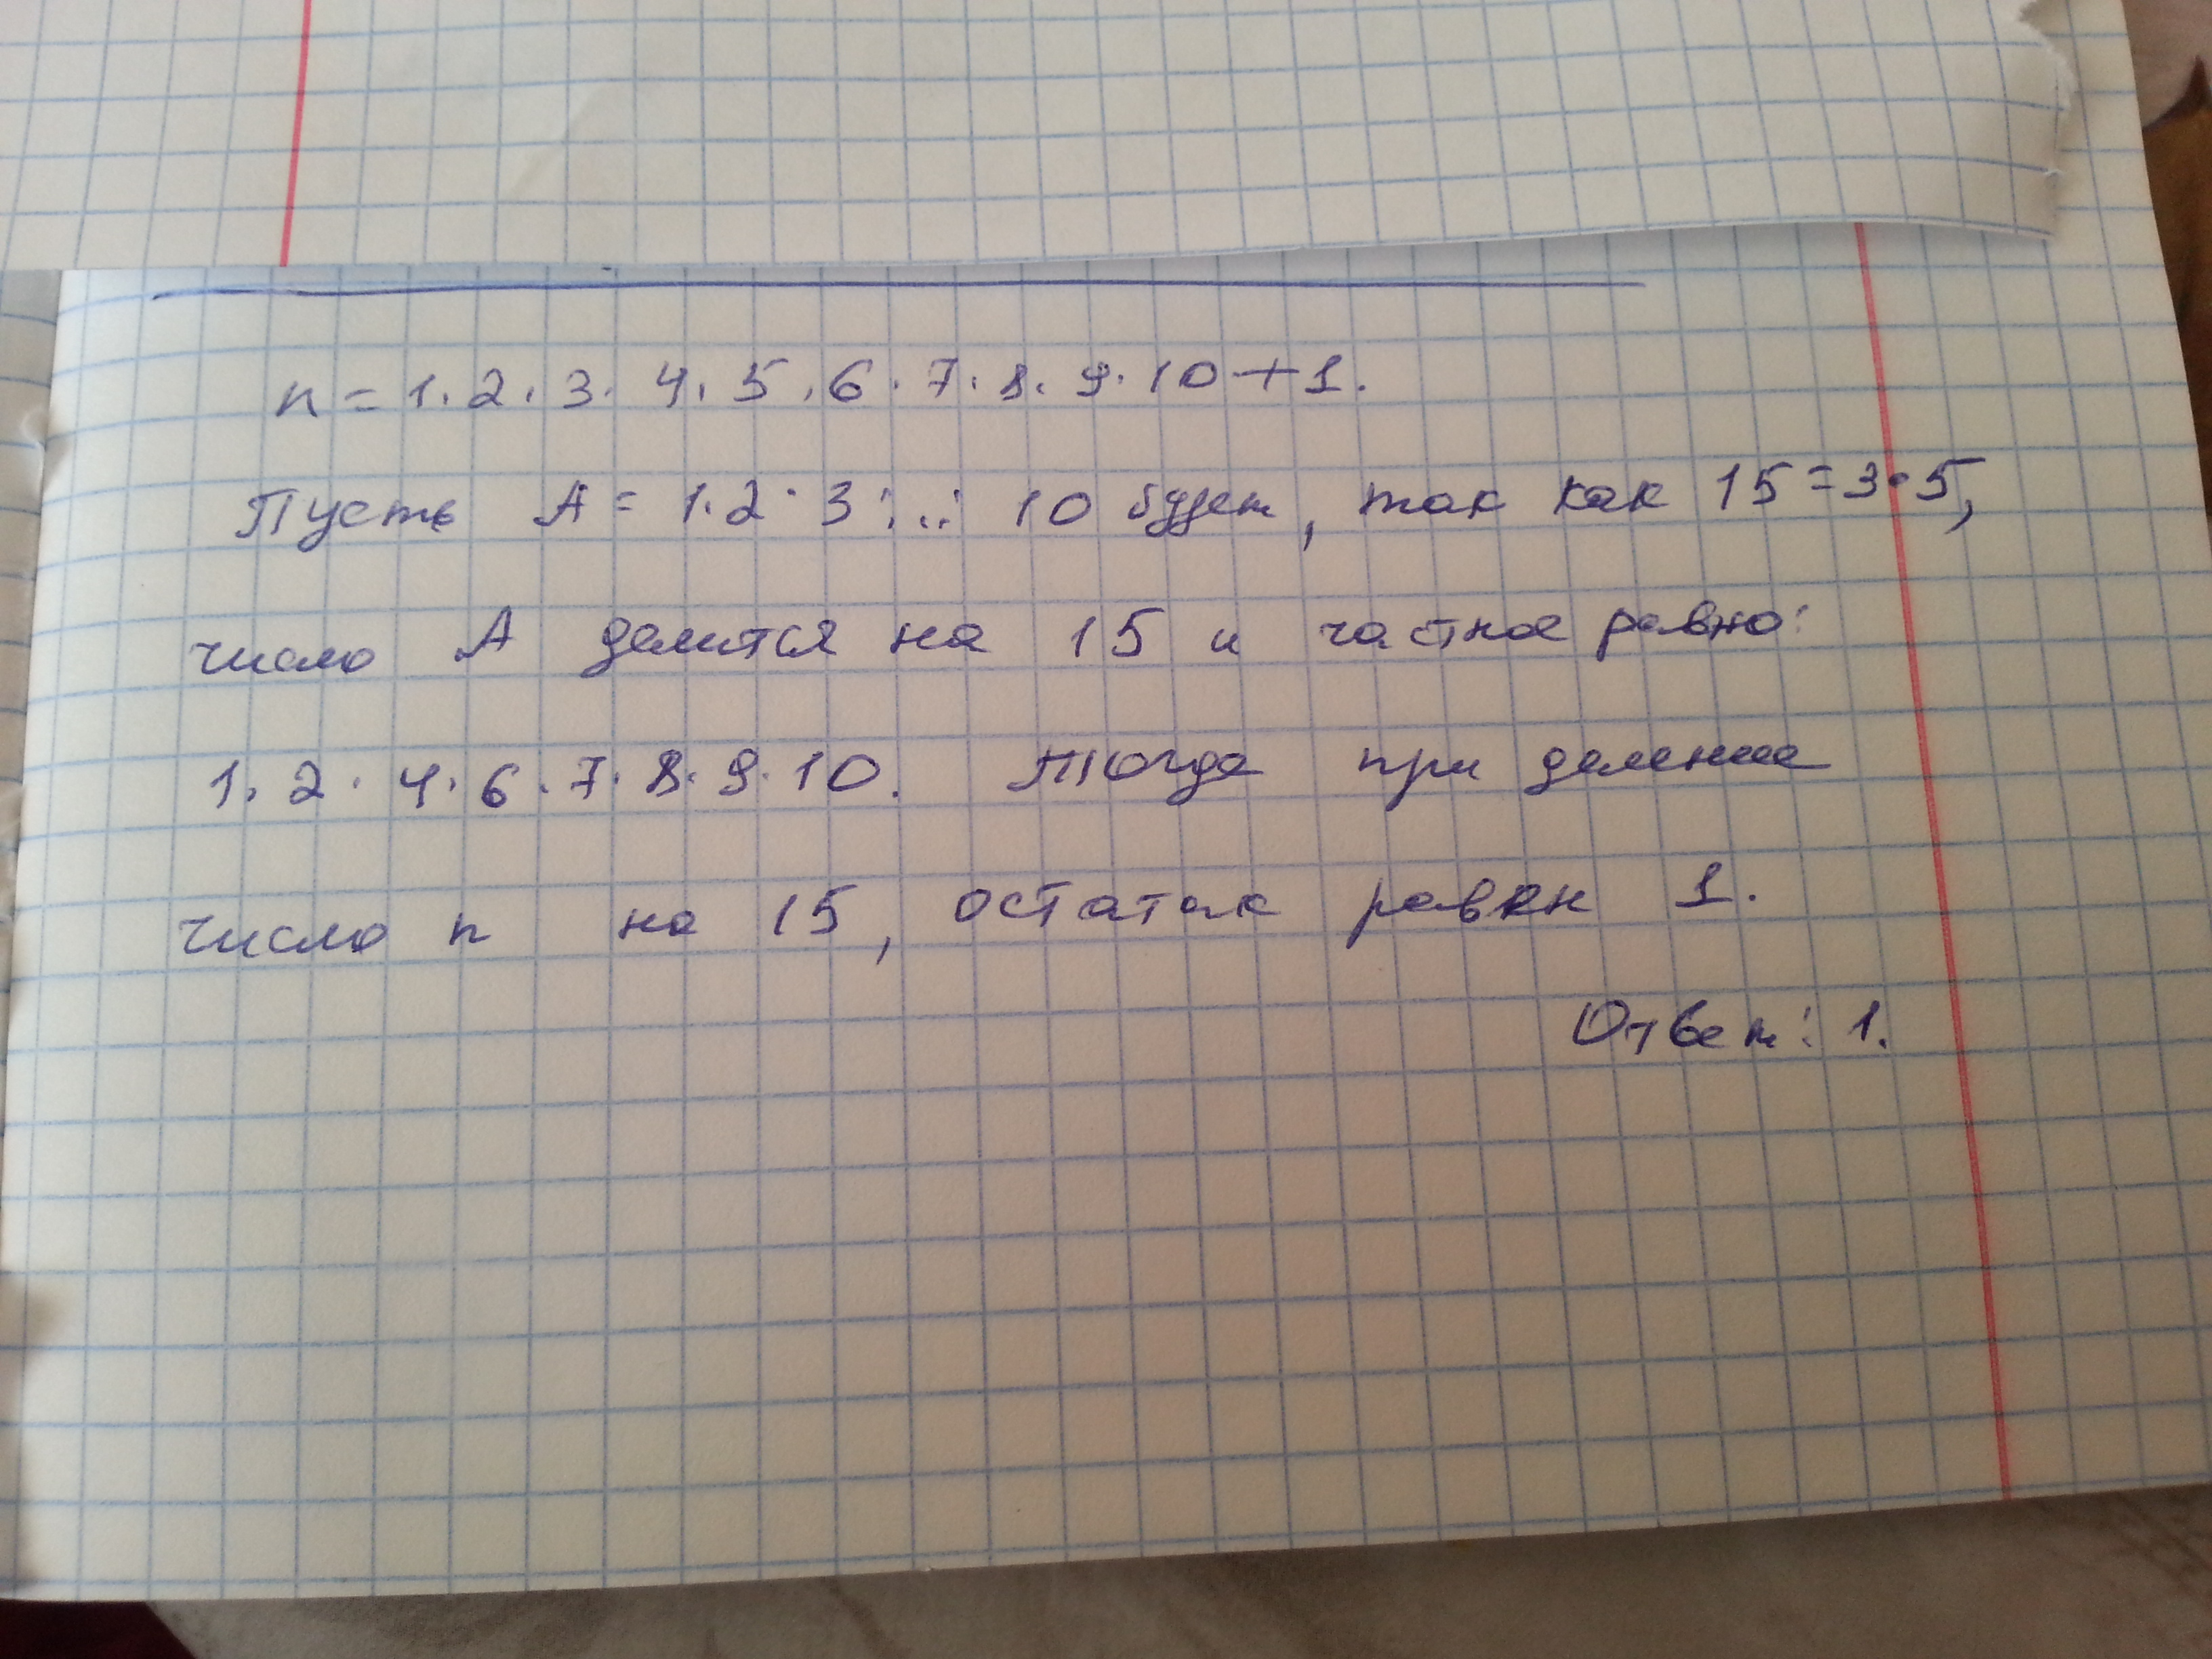 n = 1 · 2 · 3 · 4 · 5 · 6 · 7 · 8 · 9 · 10 + 1.
Пусть A = 1 · 2 · 3 · ... · 10 будет, так как 15 = 3 · 5,
число A делится на 15 и частное равно:
1 · 2 · 4 · 6 · 7 · 8 · 9 · 10. Тогда при делении
число n на 15, остаток равен 1.
Ответ: 1.